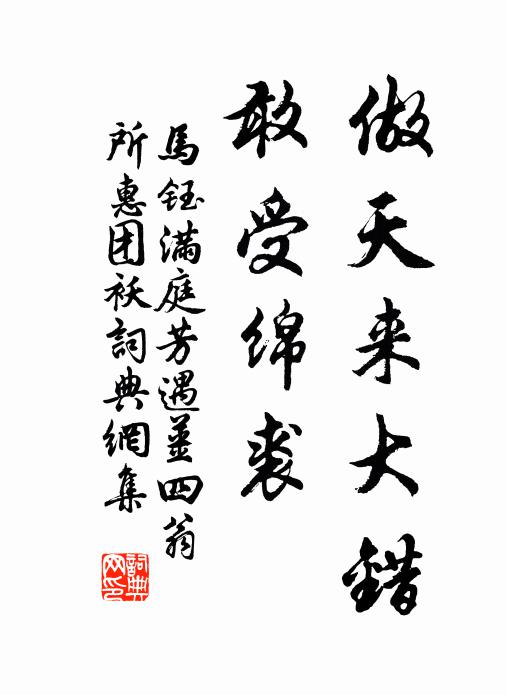 做天来大錯
敢受绵裘
馬鈺满庭芳遇薑四翁
所惠团袄詞典網集
詞典网印